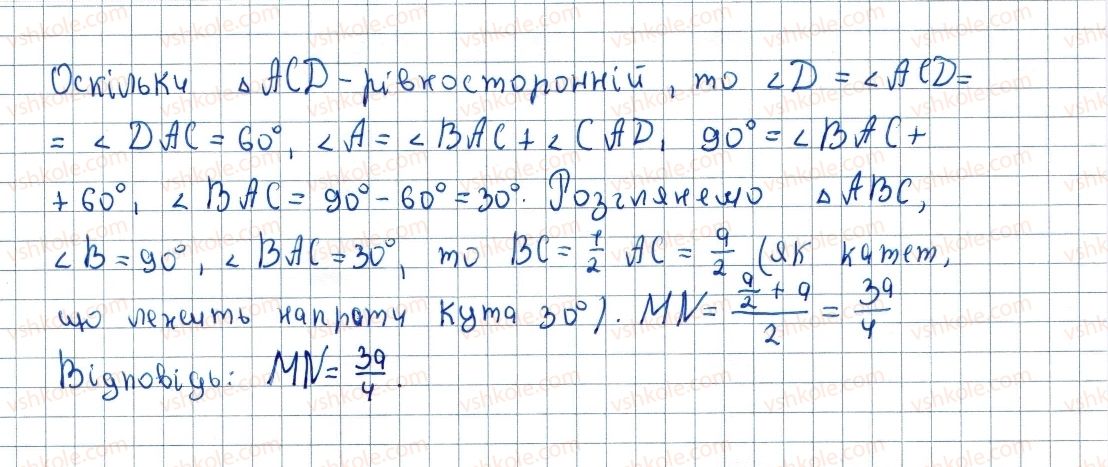 Оскільки △ACD - рівносторонній, то ∠D = ∠ACD =
= ∠DAC = 60°, ∠A = ∠BAC + ∠CAD, 90° = ∠BAC +
+ 60°, ∠BAC = 90° - 60° = 30°. Розглянемо △ABC,
∠B = 90°, ∠BAC = 30°, то BC = 1/2 AC = a/2 (як катет,
що лежить напроти кута 30°). MN = (a/2 + a)/2 = 3a/4
Відповідь: MN = 3a/4.